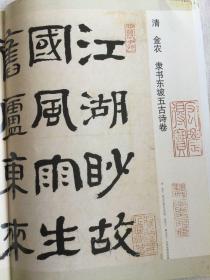 清 金农 隶书东坡五古诗卷
江湖眇故
國風雨生
舊廬東來